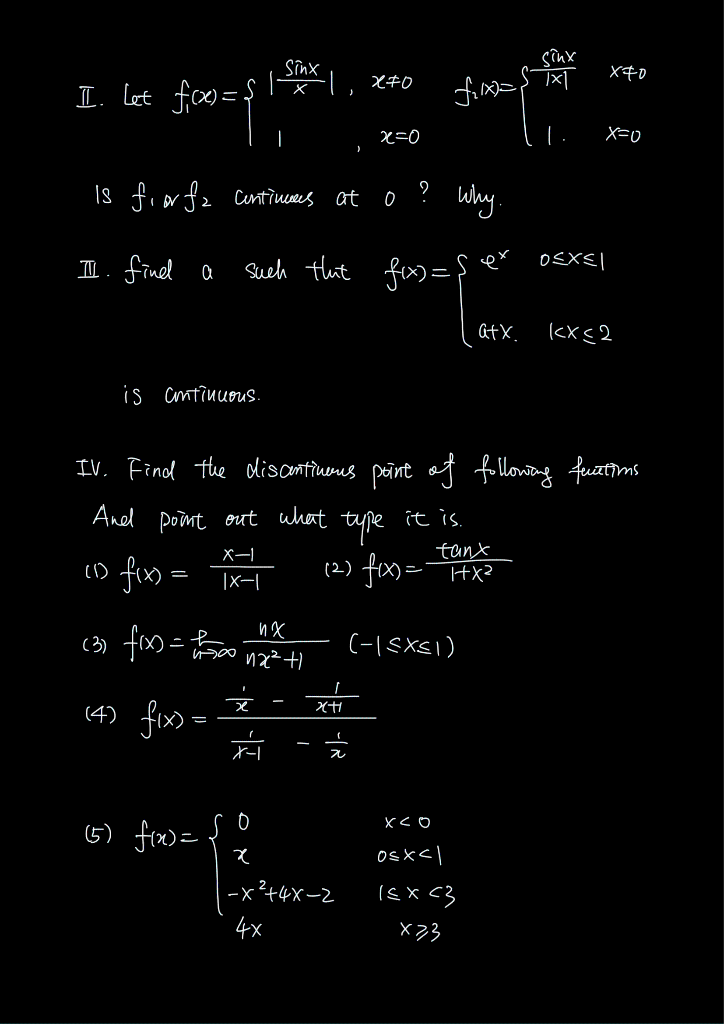 II. Let f₁(x) = { |sinx/x|, x≠0   f₂(x) = { sinx/|x|   x≠0
1, x=0   1.   x=0
Is f₁ or f₂ continuous at 0? Why.
III. find a such that f(x) = { eˣ   0≤x≤1
a+x.   1<x≤2
is continuous.
IV. Find the discontinuous point of following functions
And point out what type it is.
(1) f(x) = (x-1)/|x-1   (2) f(x) = tanx/(1+x²)
(3) f(x) = lim n→∞ nx/(nx²+1)   (-1≤x≤1)
(4) f(x) = (1/x - 1/(x+1))/(1/(x-1) - 1/x)
(5) f(x) = { 0   x<0
x   0≤x<1
-x²+4x-2   1≤x<3
4x   x≥3